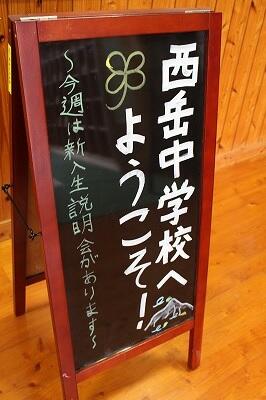 西岳中学校へ
ようこそ！
～今週は新入生説明会があります～